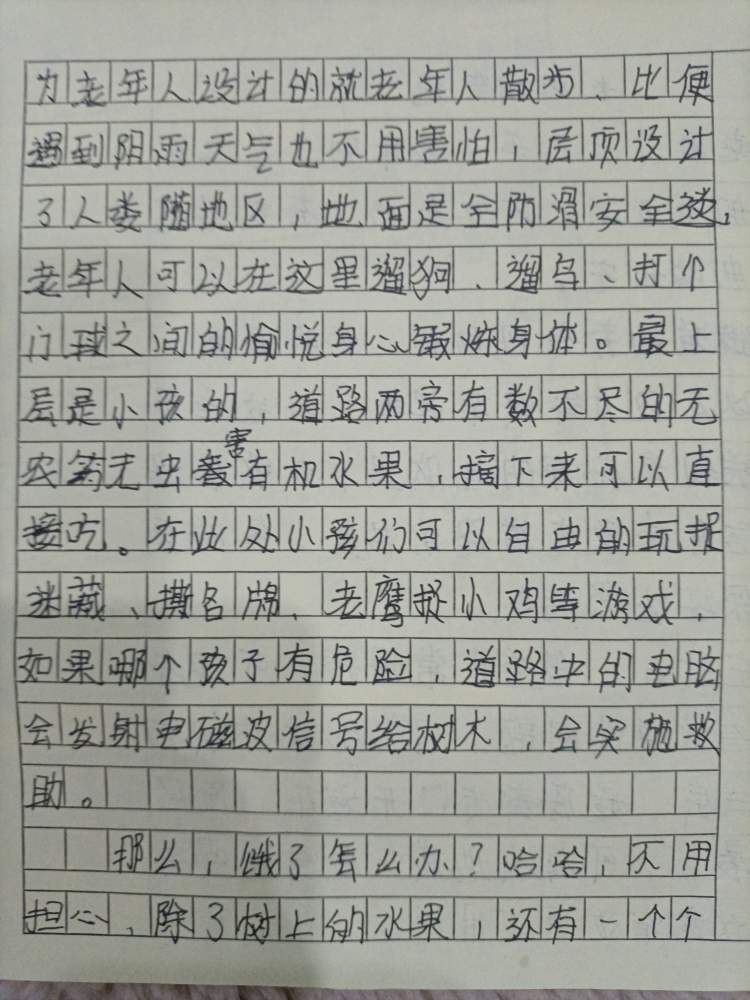 为老年人设计的就老年人散步、比便
遇到阴雨天气也不用害怕，层顶设计
了人娄随地区，地面是全防滑安全毯，
老年人可以在这里遛狗、遛鸟、打个
门球之间的愉悦身心锻炼身体。最上
层是小孩的，道路两旁有数不尽的无
农药无虫害有机水果，摘下来可以直
接吃。在此处小孩们可以自由的玩捉
迷藏、撕名牌、老鹰捉小鸡等游戏，
如果哪个孩子有危险，道路中的电脑
会发射电磁波信号给树木，会实施救
助。
那么，饿了怎么办？哈哈，不用
担心，除了树上的水果，还有一个个